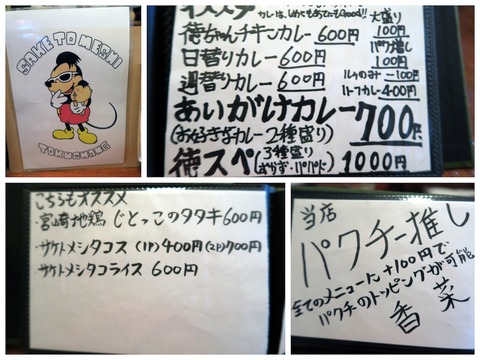 SAKE TO MESHI
TOKUCHANG
カレーは、しめてもあてにもGood!!
大盛り
100円
徳ちゃんチキンカレー 600円
パクチ増し
100円
日替りカレー 600円
ルゥのみナ -100円
週替りカレー 600円
ハーフカレー 400円
あいがけカレー
(お好きなカレー2種盛り) 700円
徳スペ (3種盛り
おかず・パパド) 1000円
こちらもオススメ
・宮崎地鶏じとっこのタタキ 600円
・サケトメシタコス (1P) 400円 (2P) 700円
サケトメシタコライス 600円
当店
パクチー推し
全てのメニューに +100円で
パクチのトッピングが可能
香菜